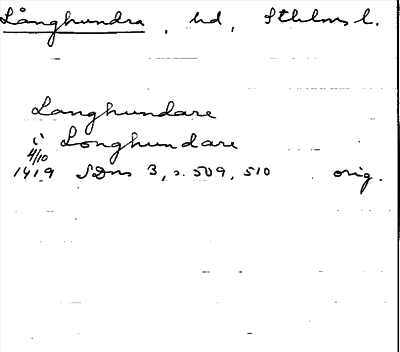 Långhundra, hd, Sthlms l.
Langhundare
i Longhundare
4/10
1419 SDns 3, s. 509, 510 orig.